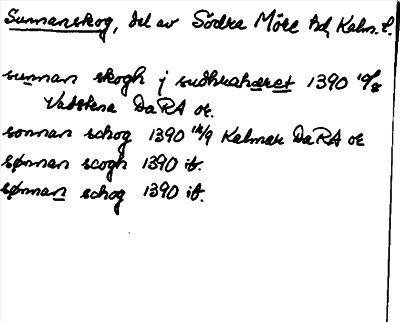 Sunnanskog, del av Södra Möre hd, Kalm. l.
sunnan skogh j sudhrahæret 1390 10/2
Vadstena DaRA or.
sonnan schog 1390 14/9 Kalmar DaRA or
sønnan scogh 1390 ib.
sønnan schog 1390 ib.